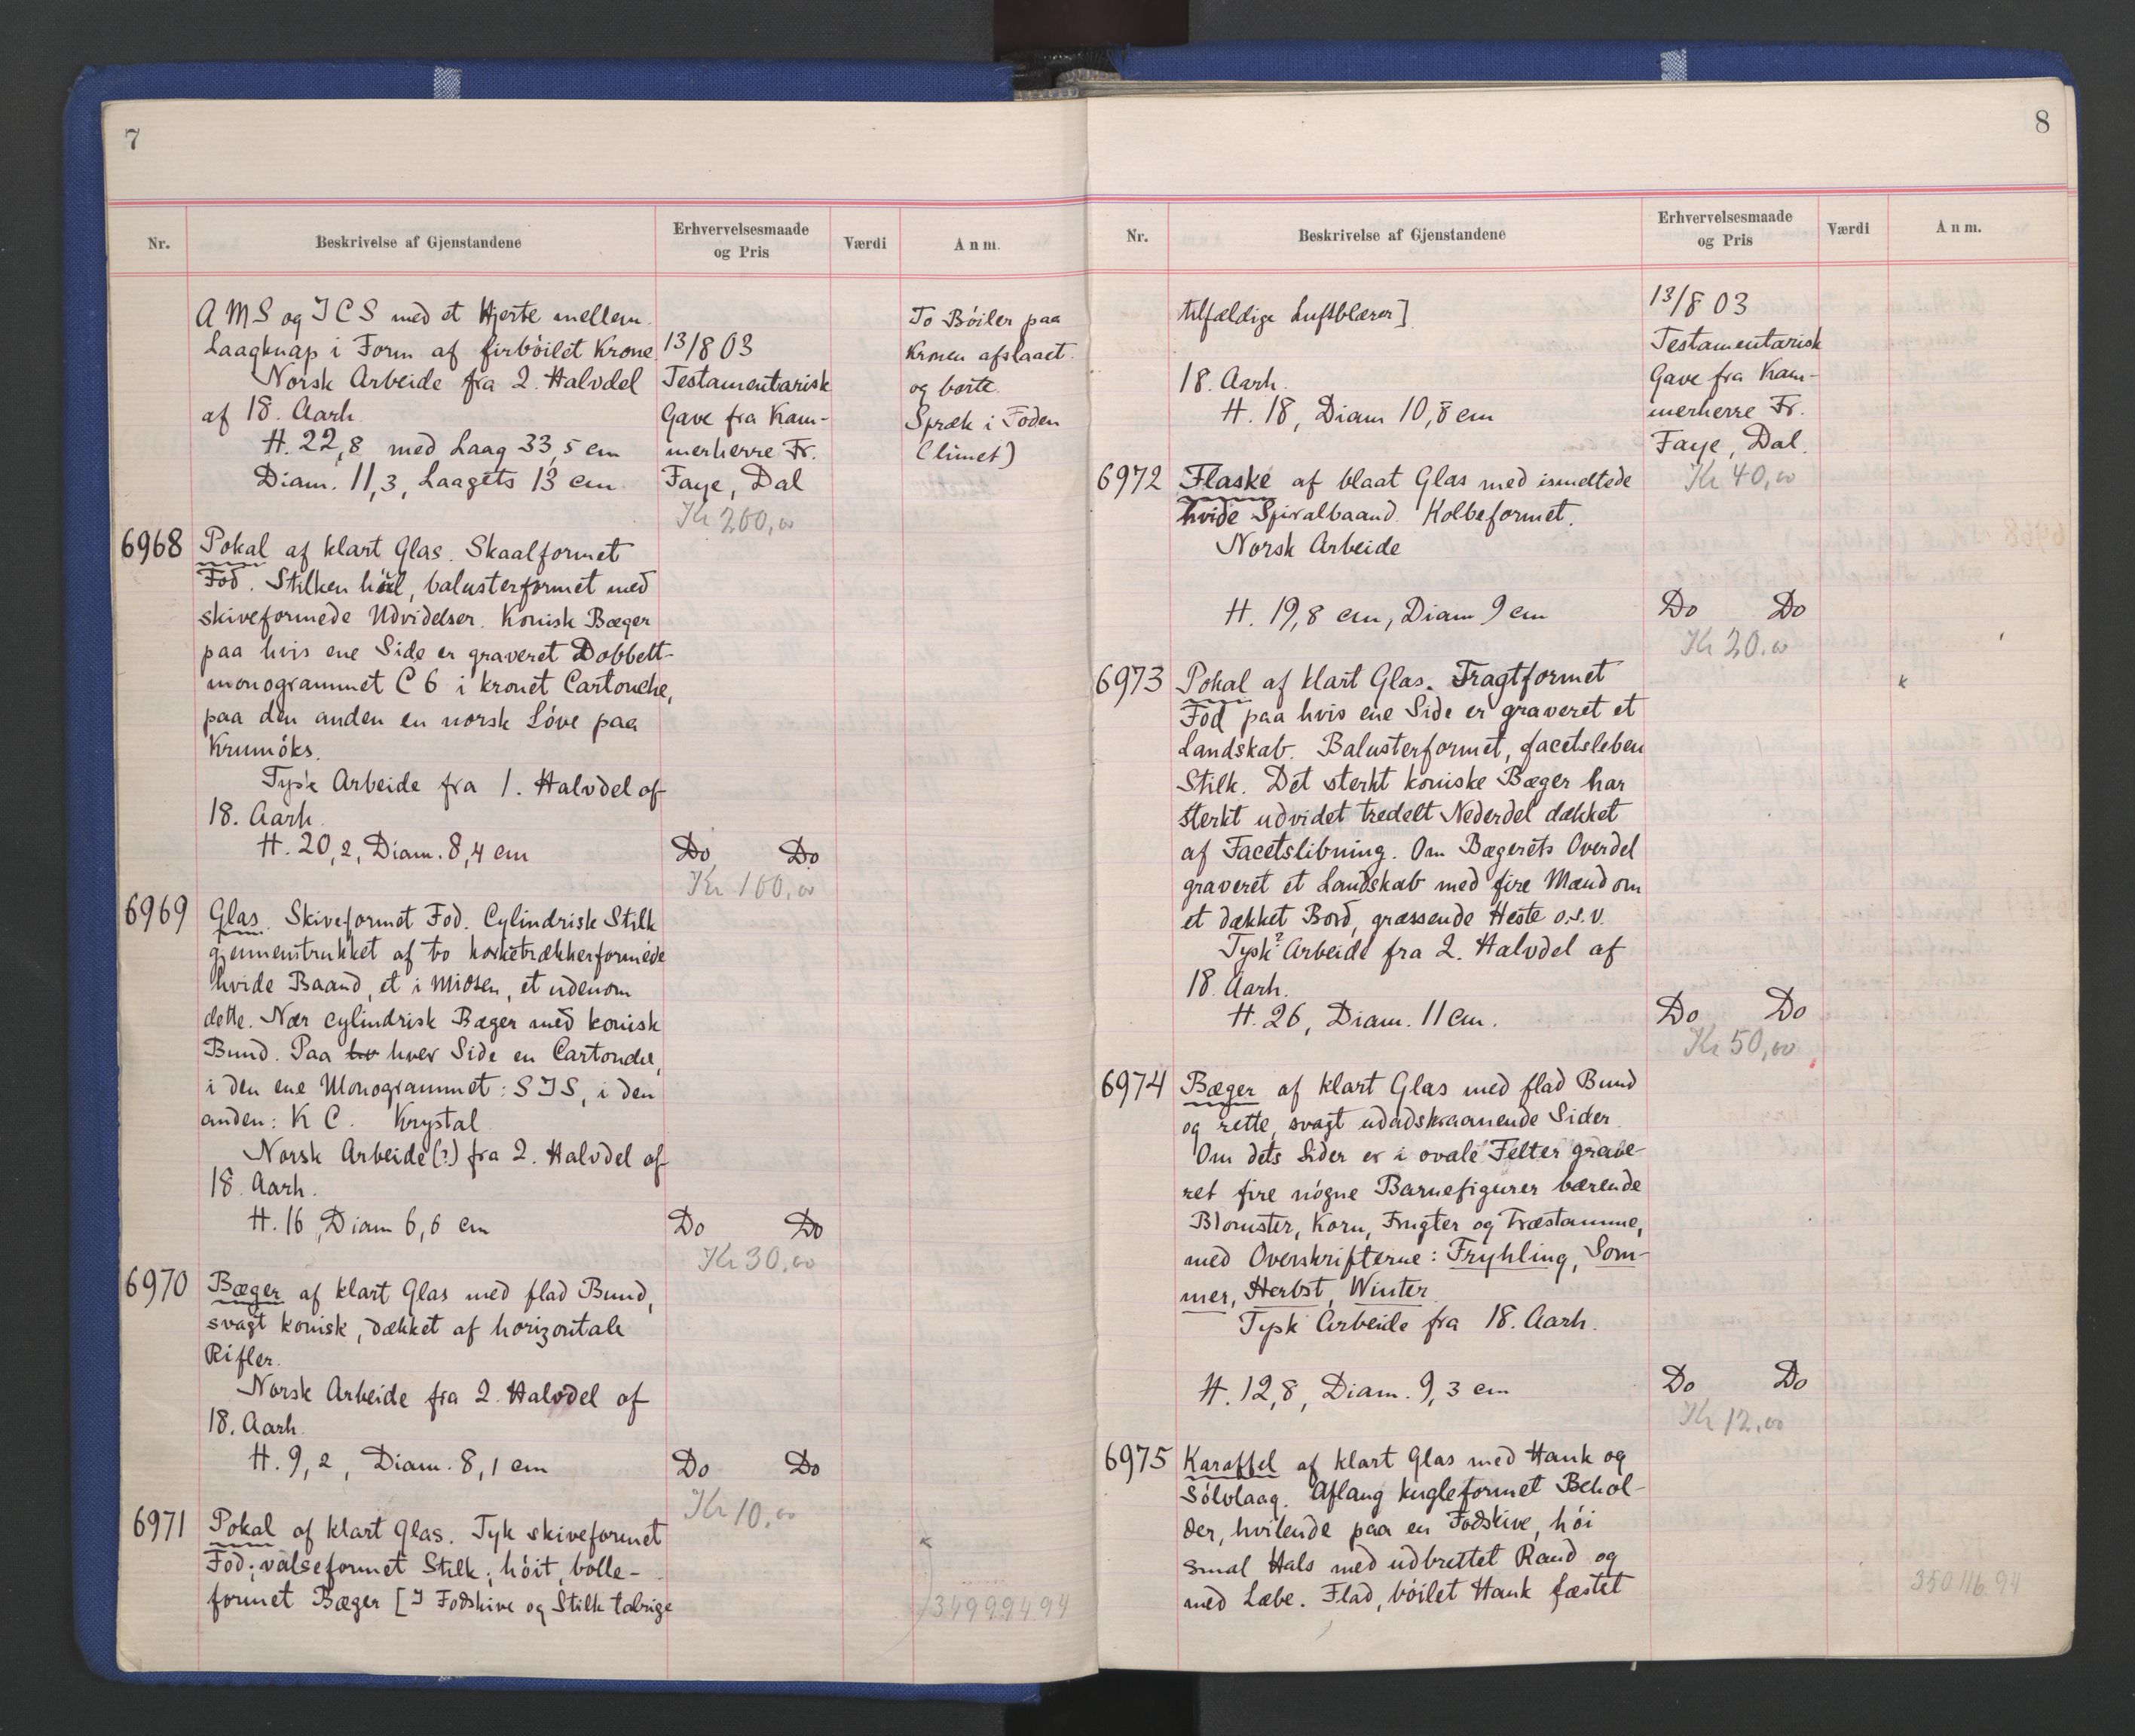 7
Nr.
Beskrivelse af Gjenstandene
Erhvervelsesmaade
og Pris
Værdi
Anm.
A M S og J C S med et Hjerte mellem.
Laagknap i Form af firbøilet Krone
Norsk Arbeide fra 2. Halvdel
af 18. Aarh.
H. 22,8 med Laag 33,5 cm
Diam. 11,3, Laagets 13 cm
13/8 03
Testamentarisk
Gave fra Kam-
merherre Fr.
Faye, Dal
Kr 200,00
To Bøiler paa
Kronen afslaaet
og borte.
Spræk i Foden
(limet)
6968
Pokal af klart Glas. Skaalformet
Fod. Stilken hul, balusterformet med
skiveformede Udvidelser. Konisk Bæger
paa hvis ene Side er graveret Dobbelt-
monogrammet C 6 i kronet Cartouche,
paa den anden en norsk Løve paa
Krumøks.
Tysk Arbeide fra 1. Halvdel af
18. Aarh.
H. 20,2, Diam. 8,4 cm
Do Do
Kr 100,00
6969
Glas. Skiveformet Fod. Cylindrisk Stilk
gjennemtrukket af to korketrækkerformede
hvide Baand, et i Midten, et udenom
dette. Nær cylindrisk Bæger med konisk
Bund. Paa hver Side en Cartouche,
i den ene Monogrammet: S J S, i den
anden: K C. Krystal
Norsk Arbeide(?) fra 2. Halvdel af
18. Aarh.
H. 16, Diam 6,6 cm
Do Do
Kr 30,00
6970
Bæger af klart Glas med flad Bund,
svagt konisk, dækket af horizontale
Rifler.
Norsk Arbeide fra 2. Halvdel af
18. Aarh.
H. 9,2, Diam. 8,1 cm
Do Do
Kr 10,00
6971
Pokal af klart Glas. Tyk skiveformet
Fod; valseformet Stilk; høit, bolle-
formet Bæger [I Fodskive og Stilk talrige
349994.94
8
Nr.
Beskrivelse af Gjenstandene
Erhvervelsesmaade
og Pris
Værdi
Anm.
tilfældige Luftblærer]
18. Aarh.
H. 18, Diam 10,8 cm
13/8 03
Testamentarisk
Gave fra Kam-
merherre Fr.
Faye, Dal.
Kr 40,00
6972
Flaske af blaat Glas med ismeltede
hvide Spiralbaand. Kolbeformet.
Norsk Arbeide
H. 19,8 cm, Diam 9 cm
Do Do
Kr 20,00
6973
Pokal af klart Glas. Tragtformet
Fod paa hvis ene Side er graveret et
Landskab. Balusterformet, facetsleben
Stilk. Det sterkt koniske Bæger har
sterkt udvidet tredelt Nederdel dækket
af Facetslibning. Om Bægerets Overdel
graveret et Landskab med fire Mænd om
et dækket Bord, græssende Heste o.s.v.
Tysk? Arbeide fra 2. Halvdel af
18. Aarh.
H. 26, Diam. 11 cm.
Do Do
Kr 50,00
6974
Bæger af klart Glas med flad Bund
og rette, svagt udadskraanende Sider.
Om dets Sider er i ovale Felter grave-
ret fire nøgne Barnefigurer bærende
Blomster, Korn, Frugter og Træstamme,
med Overskrifterne: Fryhling, Som-
mer, Herbst, Winter
Tysk Arbeide fra 18. Aarh.
H. 12,8, Diam. 9,3 cm
Do Do
Kr 12,00
6975
Karaffel af klart Glas med Hank og
Sølvlaag. Aflang kugleformet Behol-
der, hvilende paa en Fodskive, høi
smal Hals med udbrettet Rand og
med Læbe. Flad, bøilet Hank fæstet
350116.94